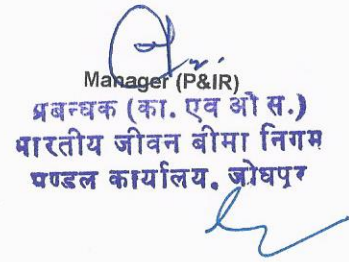 Manager (P&IR)
प्रबन्धक (का. एव औ स.)
भारतीय जीवन बीमा निगम
मण्डल कार्यालय, जोधपुर